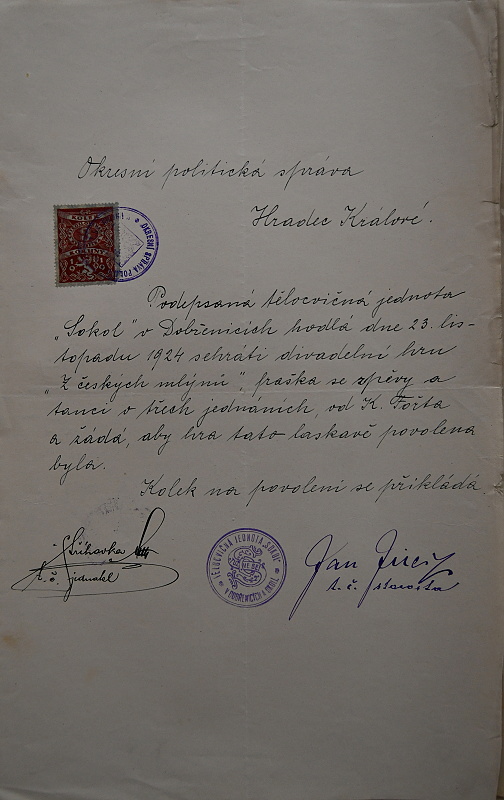 Okresní politická správa
Hradec Králové.
KOLEK
OKRESNÍ SPRÁVA POL
Podepsaná tělocvičná jednota
„Sokol" v Dobřenicích hodlá dne 23. lis-
topadu 1924 sehráti divadelní hru
„Z českých mlýnů", fraška se zpěvy a
tanci o třech jednáních, od K. Fořta
a žádá, aby hra tato laskavě povolena
byla.
Kolek na povolení se přikládá
t. č. jednatel
TĚLOCVIČNÁ JEDNOTA „SOKOL"
V DOBŘENICÍCH A OKOLÍ
Jan
t. č. starosta